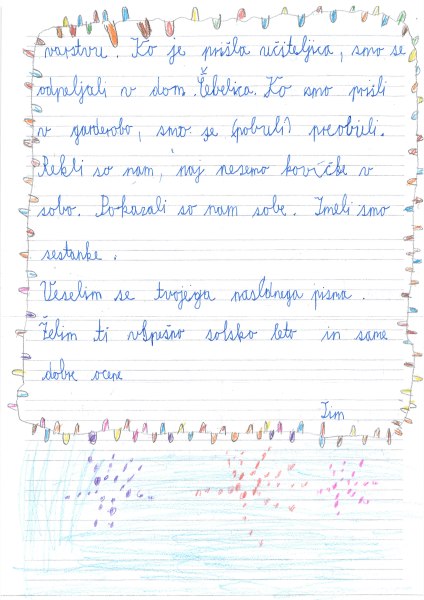 varstvu. Ko je prišla učiteljica, smo se
odpeljali v dom Čebelica. Ko smo prišli
v garderobo, smo se (pobuli) preobuli.
Rekli so nam, naj nesemo kovčke v
sobo. Pokazali so nam sobe. Imeli smo
sestanke.
Veselim se tvojega naslednega pisma.
Želim ti uspešno šolsko leto in same
dobre ocene
Tim